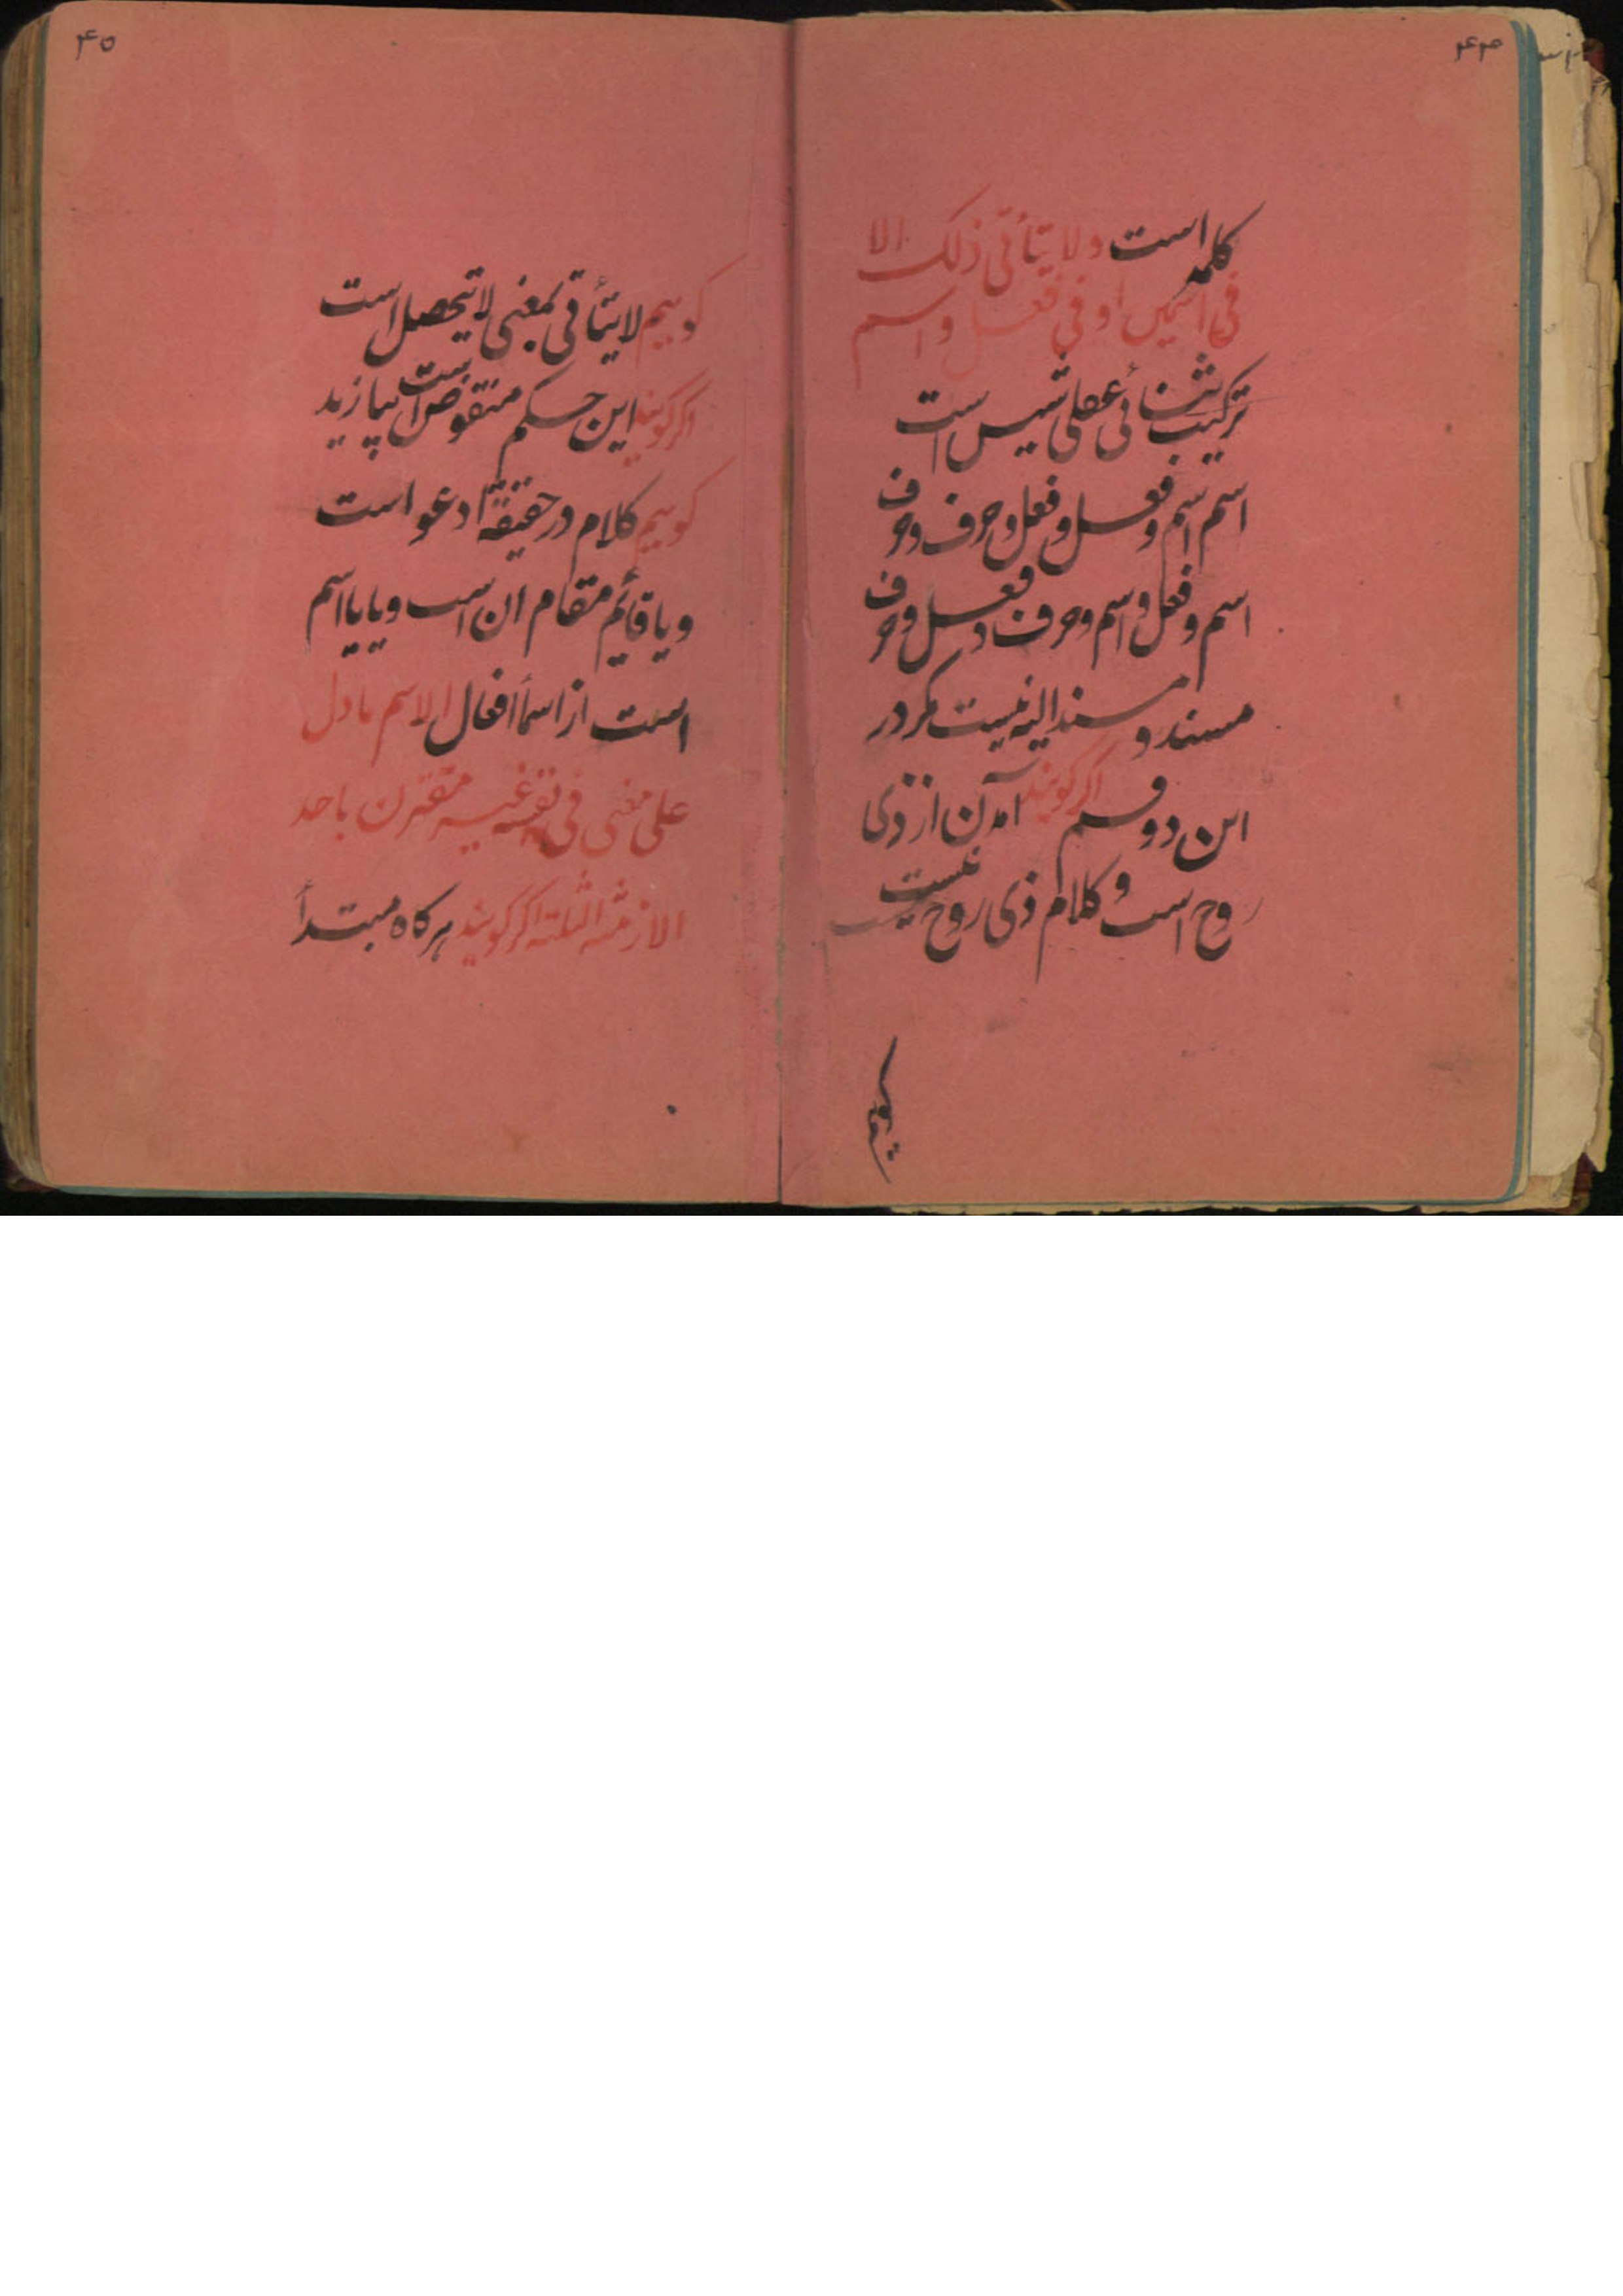 ۴۴
كلمه است ولا يتأتى ذلك الا
فى اسمين او فى فعل واسم
تركيب ثنائى عقلى شيس است
اسم اسم و فعل و فعل و حرف و حرف
اسم و فعل و اسم و حرف و فعل و حرف
مسند و مسند اليه نيست مكر در
اين دو قسم اكر كويند آمدن از ذى
روح است و كلام ذى روح نيست
كوييم
۴۵
كوييم لا يتأتى بمعنى لا يتحصل است
اكر كويند اين حكم منقوض است بيا زيد
كوييم كلام در حقيقة ادعو است
و يا قائم مقام ان است و يا يا اسم
است از اسمأ افعال الاسم ما دل
على معنى فى نفسه غير مقترن باحد
الازمنه الثلثه اكر كويند هركاه مبتدأ